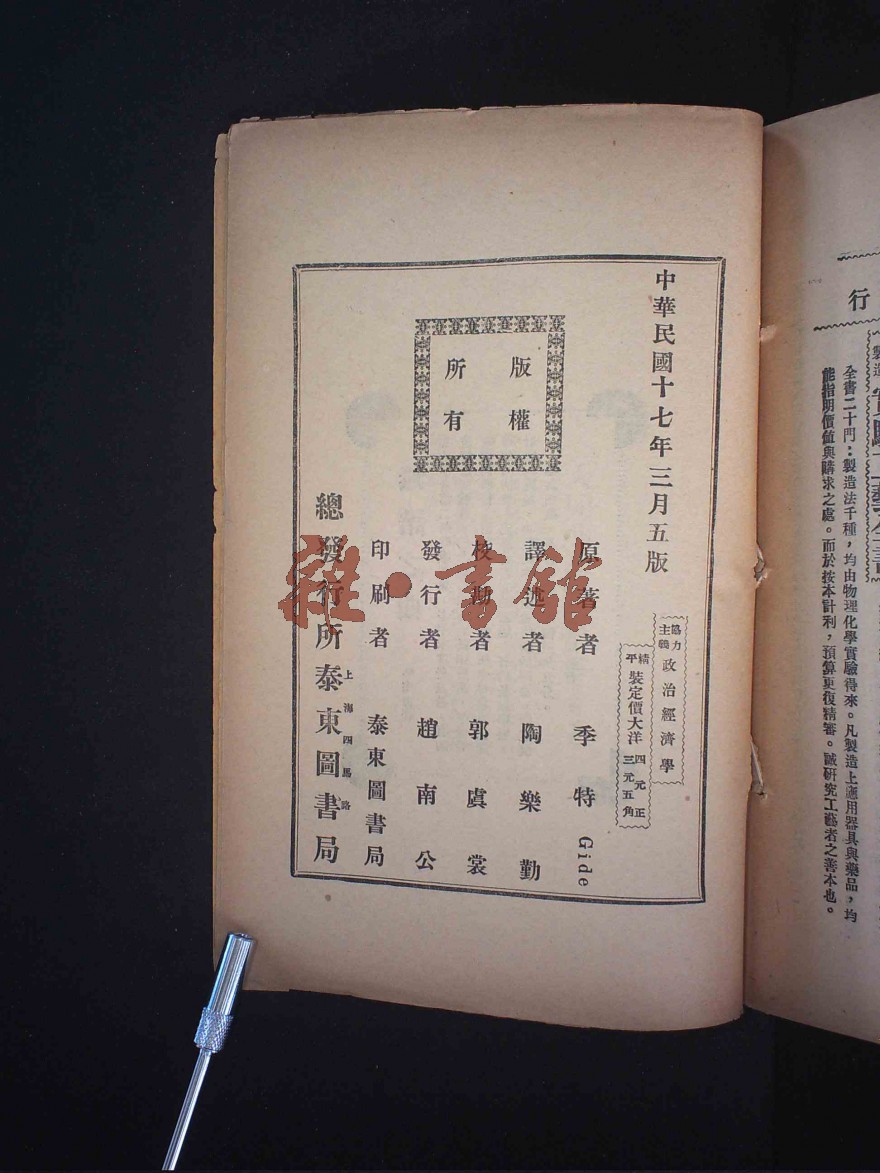 中華民國十七年三月五版
協力主義 政治經濟學
精平裝定價大洋 四元正 三元五角
版權
所有
原著者 季特 Gide
譯述者 陶樂勤
校勘者 郭虞裳
發行者 趙南公
印刷者 泰東圖書局
上海四馬路
總發行所泰東圖書局
雜·書館
行
製造
全書二十門：製造法千種，均由物理化學實驗得來。凡製造上應用器具與藥品，均
能指明價值與購求之處。而於按本計利，預算更復精審。誠研究工藝者之善本也。